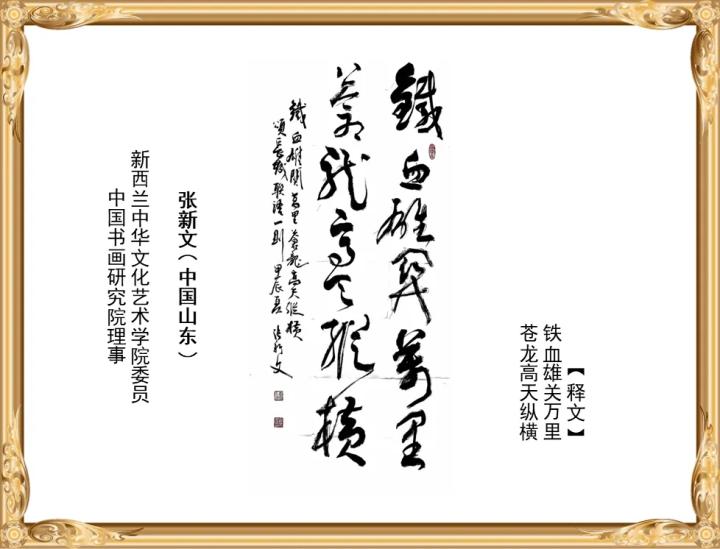 【释文】
铁血雄关万里
苍龙高天纵横
鐵血雄関萬里
蒼龍高天縱橫
鐵血雄関萬里蒼龍高天縱橫
頌長城联語一則 甲辰夏 張新文
张新文（中国山东）
新西兰中华文化艺术学院委员
中国书画研究院理事